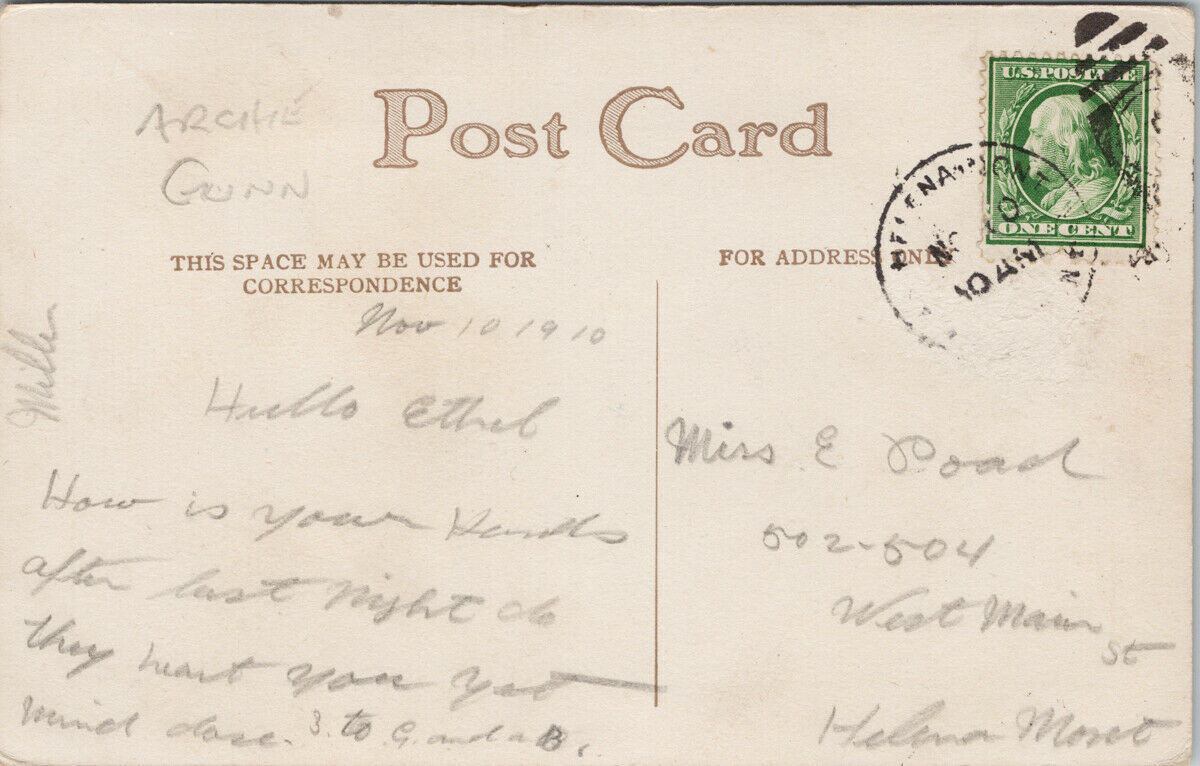 ARCHIE
GUNN
Post Card
U.S. POSTAGE
ONE CENT
HELENA
NOV
10 AM
THIS SPACE MAY BE USED FOR
CORRESPONDENCE
FOR ADDRESS ONLY
Nov 10 1910
Miller
Hullo Ethel
How is your Hands
after last night do
they heart you yet
mind dose. 3 to G. and a B.
Miss E Poad
502-504
West Main
St
Helena Mont